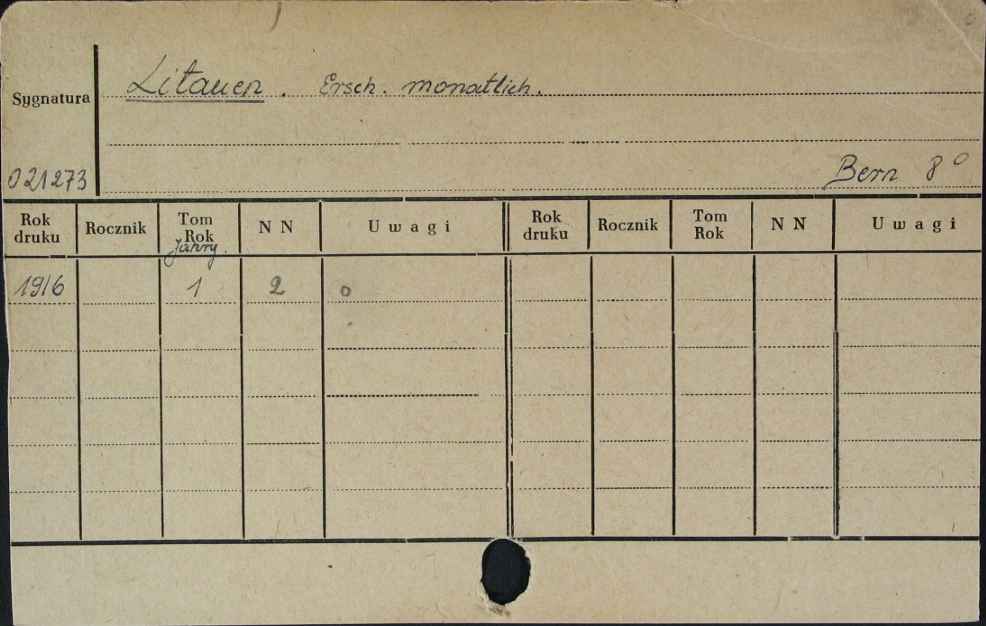 Litauen. Ersch. monatlich.
Sygnatura
021273
Bern 8°
Rok druku Rocznik Tom Rok N N Uwagi Rok druku Rocznik Tom Rok N N Uwagi
Jahrg.
1916 1 2 o